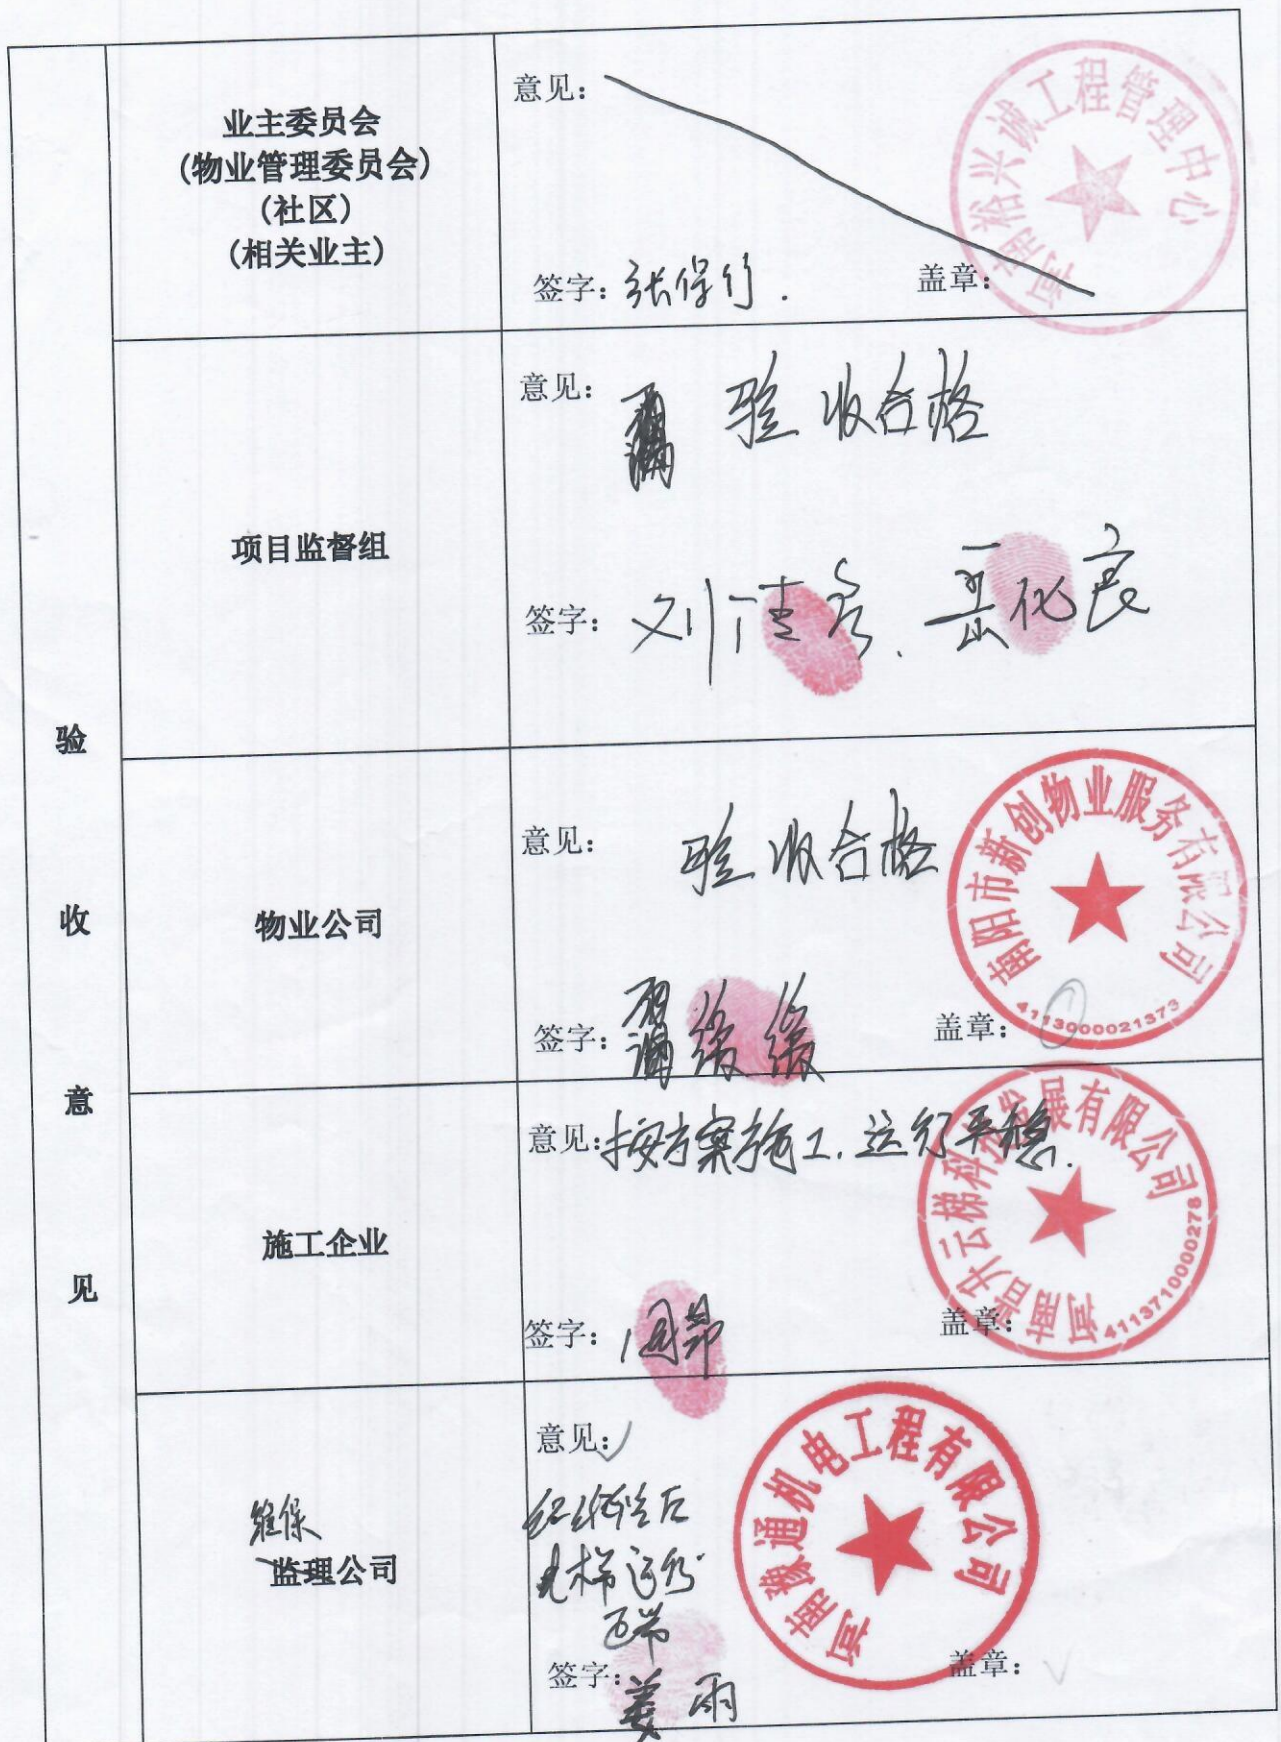 验
收
意
见
业主委员会
(物业管理委员会)
(社区)
(相关业主)
意见：
签字：张保行.
盖章：
河南裕兴诚工程管理中心
项目监督组
意见：
验收合格
签字：刘 岳 良
物业公司
意见：
验收合格
签字：
盖章：
南阳市新创物业服务有限公司
4113000021373
施工企业
意见：按方案施工.运行平稳.
签字：周昂
盖章：
河南晋升云梯科技发展有限公司
4113710000278
维保
监理公司
意见：
维修后
电梯运行
正常
签字：姜雨
盖章：
河南豫通机电工程有限公司